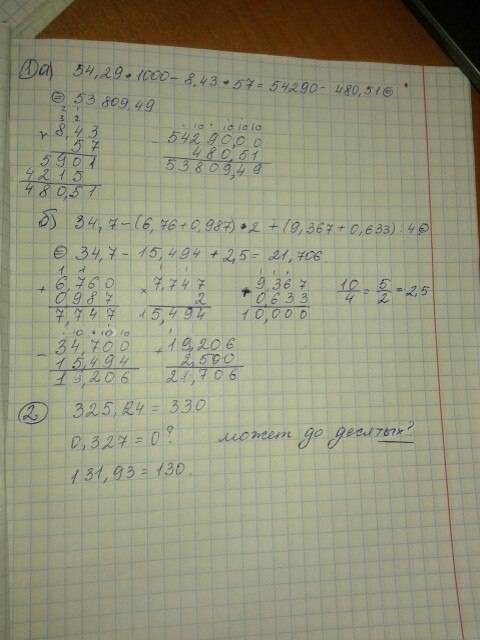 1 а) 54,29 • 1000 - 8,43 • 57 = 54290 - 480,51 =
= 53 809,49
2 1
3 2
× 8,43
57
5901
4215
480,51
10 10 10 10
- 54290,00
480,51
53809,49
б) 34,7 - (6,76 + 0,987) • 2 + (9,367 + 0,633) : 4 =
= 34,7 - 15,494 + 2,5 = 21,706.
1 1
+ 6,760
0,987
7,747
1 1
× 7,747
2
15,494
1 1 1
+ 9,367
0,633
10,000
10/4 = 5/2 = 2,5
10 10 10
- 34,700
15,494
19,206
1
+ 19,206
2,500
21,706
2. 325,24 = 330
0,327 = 0? может до десятых?
131,93 = 130.